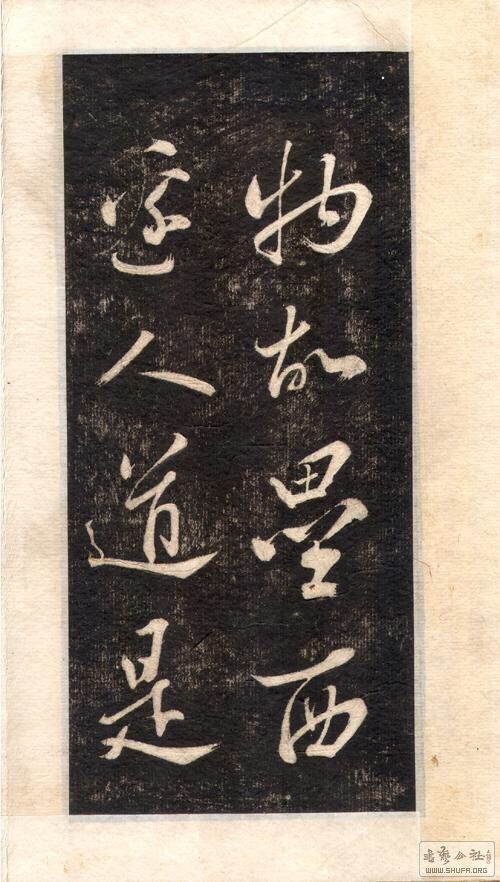 物故壘西
邊人道是
书艺公社
WWW.SHUFA.ORG